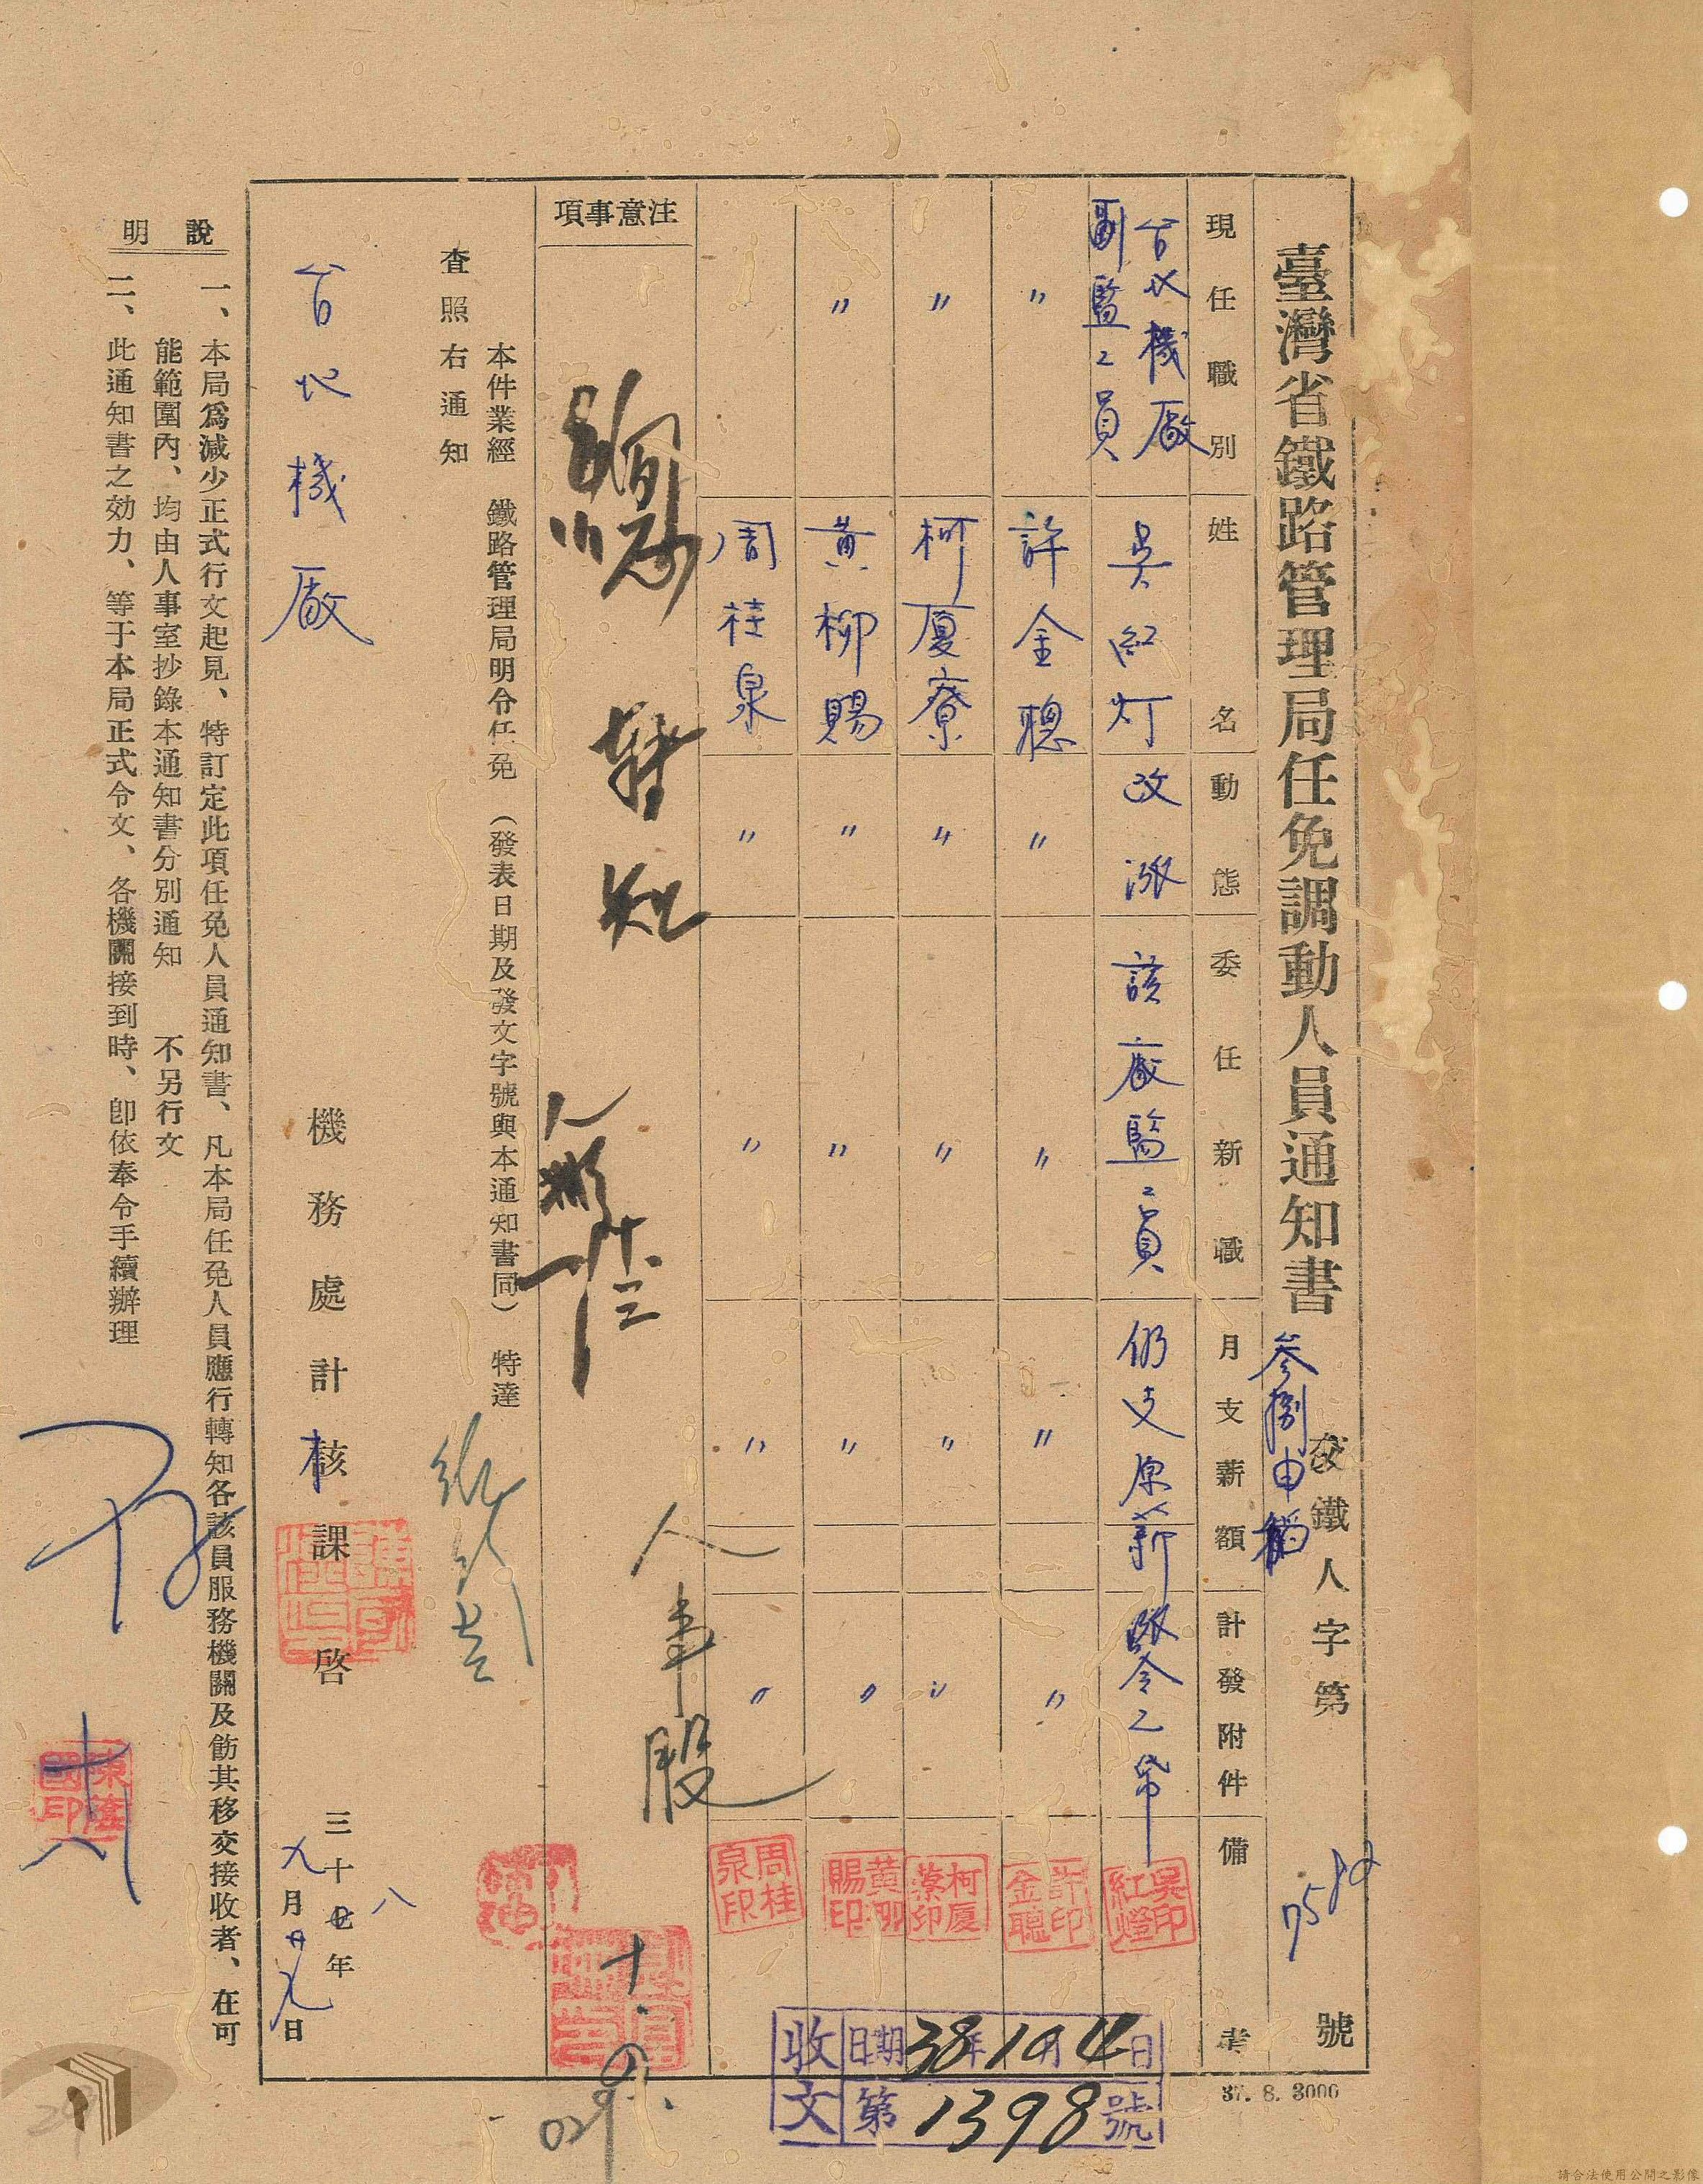 臺灣省鐵路管理局任免調動人員通知書
参捌申
交鐵人字第7582號
現任職別
姓名
動態
委任新職
月支薪額
計發附件
備考
台北機廠
副監工員
吳紅灯
改派
該廠監工員
仍支原薪
派令乙帋
吳印紅燈
〃
許金聰
〃
〃
〃
〃
許印金聰
〃
柯厦寮
〃
〃
〃
〃
〃
黃柳賜
〃
〃
〃
〃
黃柳賜印
周桂泉
〃
〃
〃
〃
周桂泉印
注意事項
轉知
人事股
本件業經 鐵路管理局明令任免 (發表日期及發文字號與本通知書同) 特達
查照右通知
台北機廠
機務處計核課啓
三十八年
九月廿九日
說明
一、本局爲減少正式行文起見、特訂定此項任免人員通知書、凡本局任免人員應行轉知各該員服務機關及飭其移交接收者、在可
能範圍內、均由人事室抄錄本通知書分別通知 不另行文
二、此通知書之効力、等于本局正式令文、各機關接到時、卽依奉令手續辦理
收文
日期38年10月4日
第1398號
37. 8. 3000
請合法使用公開之影像